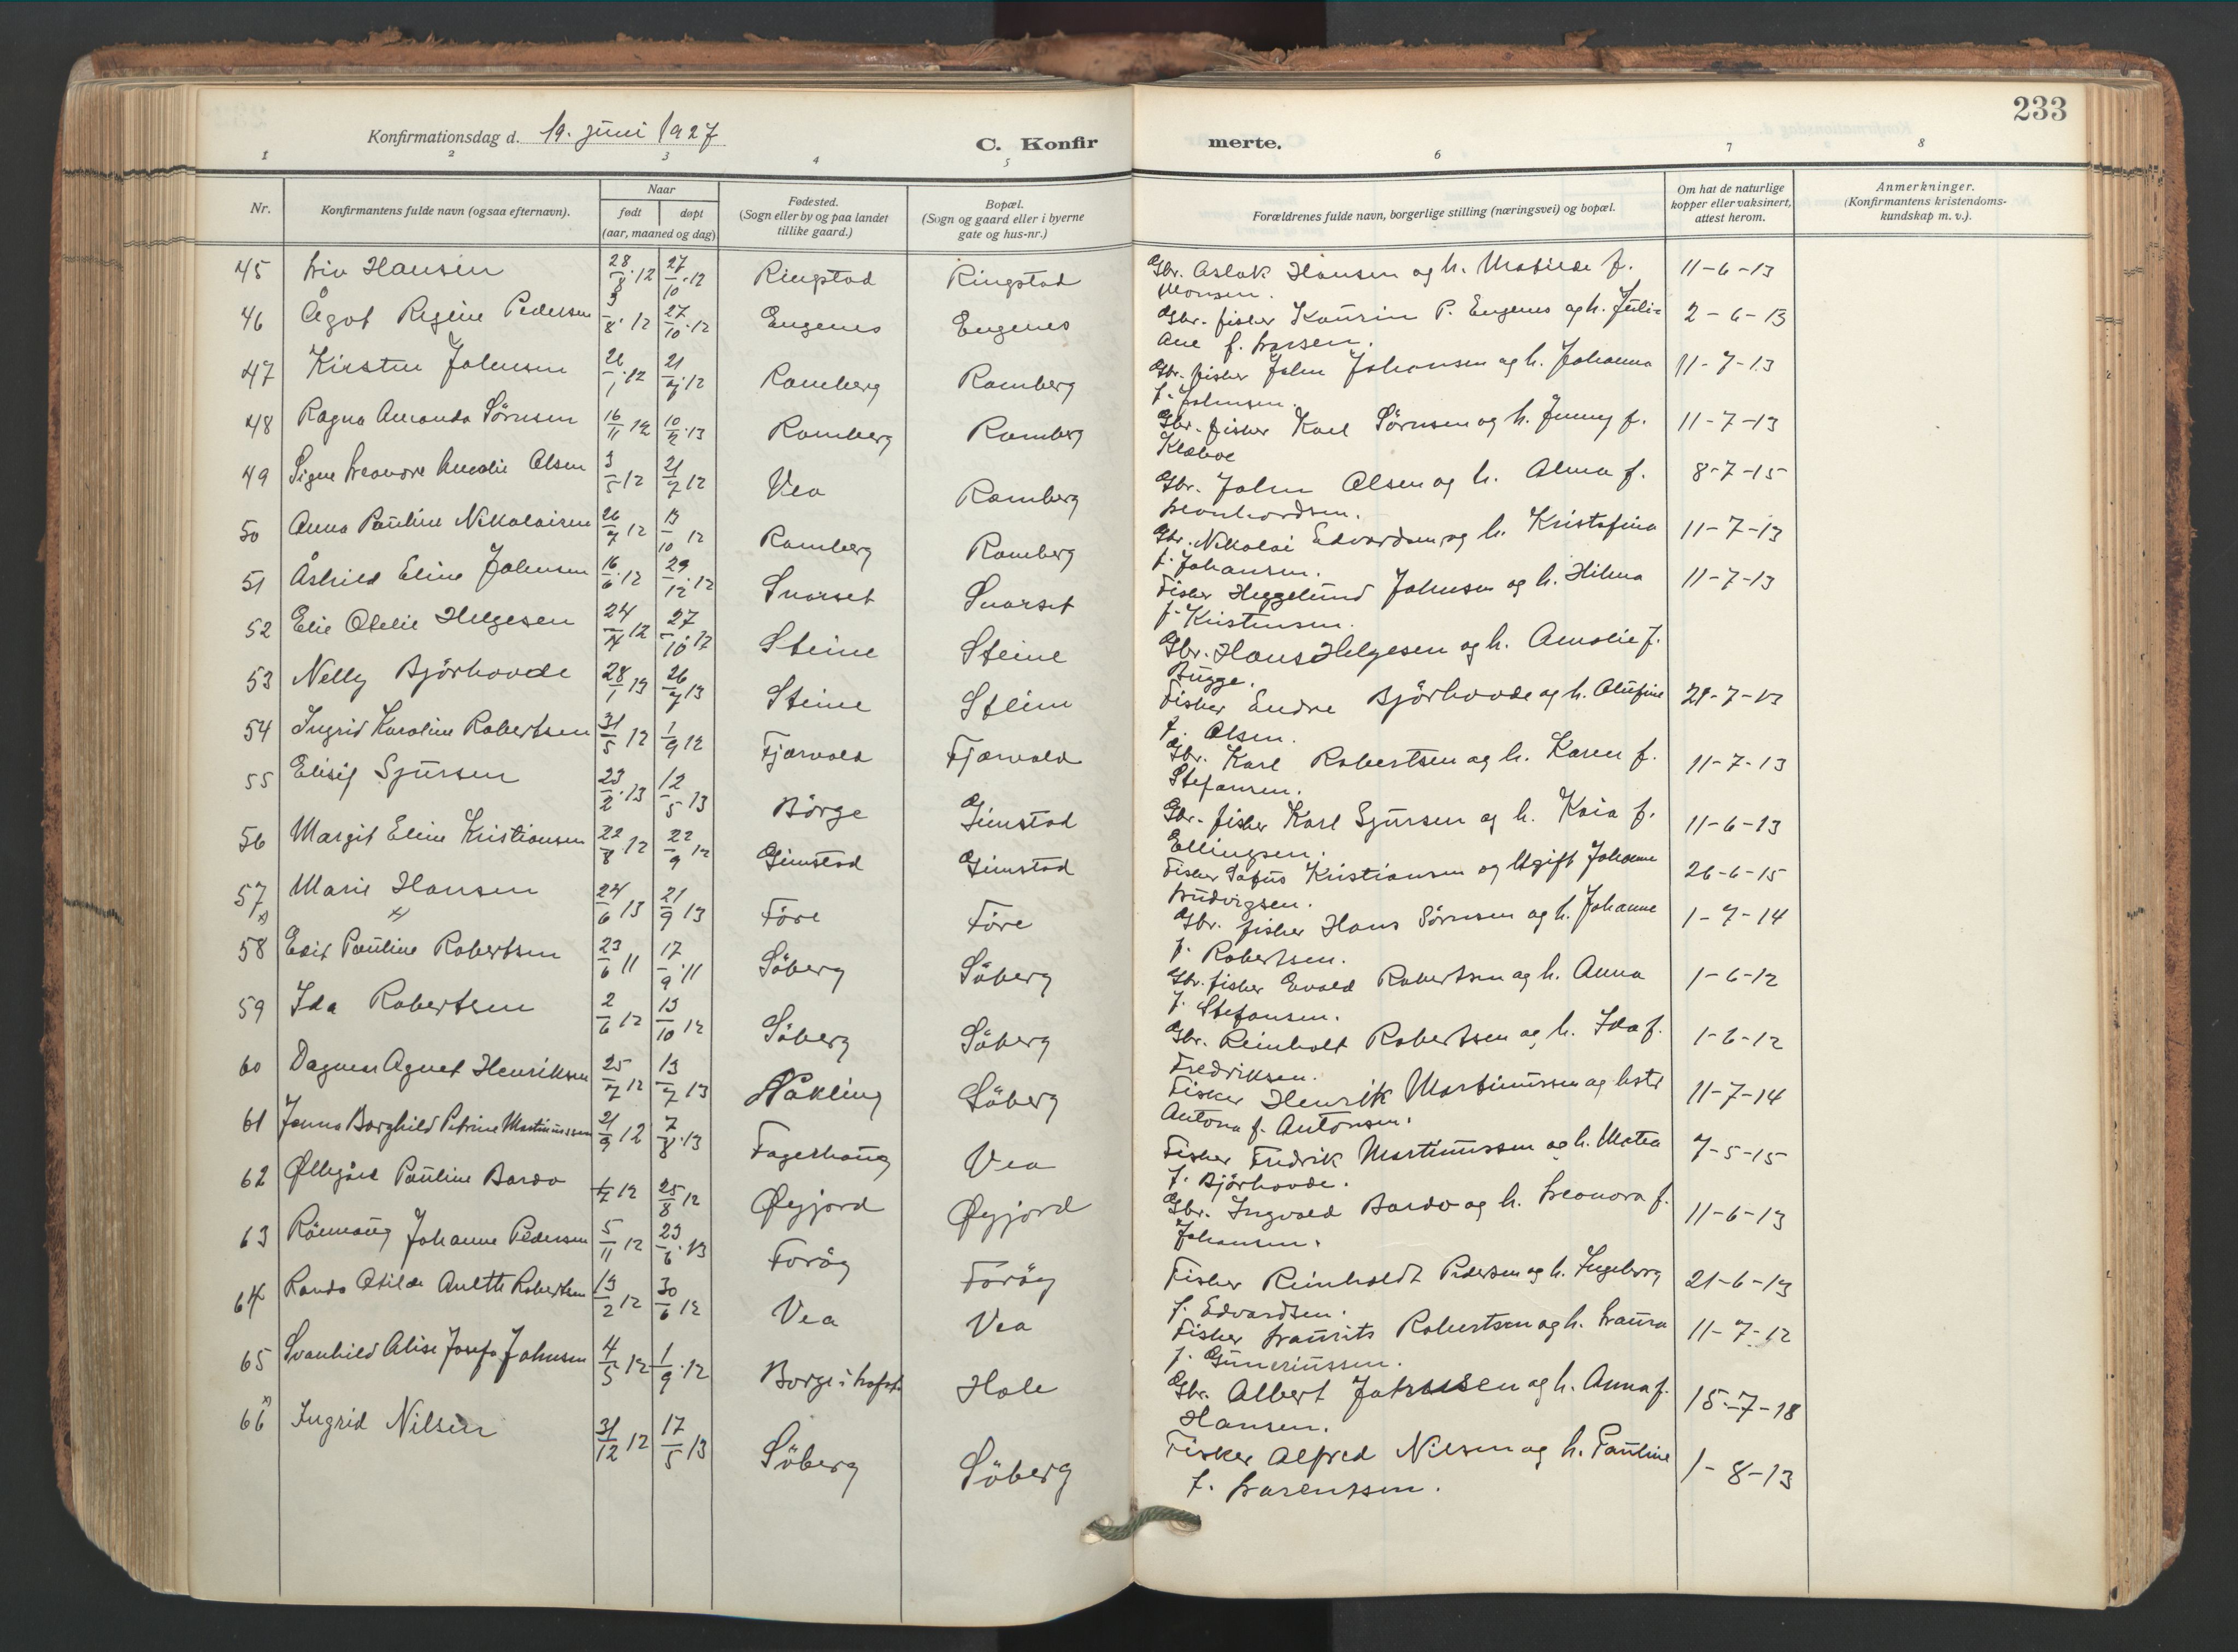 233
Konfirmationsdag d. 19. juni 1927
C. Konfirmerte.
1 2 3 4 5 6 7 8
Nr. | Konfirmantens fulde navn (ogsaa efternavn). | Naar født | døpt (aar, maaned og dag) | Fødested. (Sogn eller by og paa landet tillike gaard.) | Bopæl. (Sogn og gaard eller i byerne gate og hus-nr.) | Forældrenes fulde navn, borgerlige stilling (næringsvei) og bopæl. | Om hat de naturlige kopper eller vaksinert, attest herom. | Anmerkninger. (Konfirmantens kristendoms-kundskap m. v.).
45 Liv Hansen 28/8.12 27/10.12 Ringstad Ringstad Gbr. Aslak Hansen og h. Matilde f. Monsen. 11-6-13
46 Ågot Regine Pedersen 3/8.12 27/10.12 Eugenes Eugenes Gbr. fisker P. Eugenes og h. Juliane f. Larsen. 2-6-13
47 Kirsten Johnsen 26/1.12 21/7.12 Ramberg Ramberg Gbr. fisker John Johansen og h. Johanna f. Johnsen. 11-7-13
48 Ragna Amanda Sörnsen 16/11 12 10/2.13 Ramberg Ramberg Gbr. fisker Karl Sörnsen og h. Jenny f. Klæboe 11-7-13
49 Signe Leonore Amalie Olsen 3/5 12 21/7 12 Vea Ramberg Gbr. John Olsen og h. Alma f. Leonhardsen. 8-7-15
50 Anna Pauline Nikolaisen 26/7 12 13/10 12 Ramberg Ramberg Gbr. Nikolai Edvardsen og h. Kristofina f. Johansen. 11-7-13
51 Åshild Eline Johnsen 16/6.12 29/12.12 Snarset Snarset Fisker Heggelund Johnsen og h. Hilma f. Kristensen. 11-7-13
52 Elie Otelie Helgesen 24/4 12 27/10.12 Steine Steine Gbr. Hans Helgesen og h. Amalie f. Bugge.
53 Nelly Björhovde 28/1 13 26/7 13 Steine Steine Fisker Endre Björhovde og h. Olufine f. Olsen. 21-7-13
54 Ingrid Karoline Robertsen 31/5 12 1/9 12 Fjærvold Fjærvold Gbr. Karl Robertsen og h. Karen f. Stefansen. 11-7-13
55 Elisif Sjursen 23/2.13 12/5 13 Börge Gimstad Gbr. fisker Karl Sjursen og h. Kaia f. Ellingsen. 11-6-13
56 Margit Eline Kristiansen 22/8.12 22/9 12 Gimstad Gimstad Fisker Kristiansen og Ugift Johanne Ludvigsen. 26-6-15
57 x) Marie Hansen x) 24/6 13 21/9 13 Före Före Gbr. fisker Hans Sörnsen og h. Johanne f. Robertsen. 1-7-14
58 Edit Pauline Robertsen 23/6 11 17/9.11 Söberg Söberg Gbr. fisker Evald Robertsen og h. Anna f. Stefansen. 1-6-12
59 Ida Robertsen 2/6 12 13/10 12 Söberg Söberg Gbr. Reinholt Robertsen og h. Ida f. Fredriksen. 1-6-12
60 Dagmar Agnet Henriksen 25/7 12 13/7 13 Nökling Söberg Fisker Henrik Martinussen og hstr Antona f. Antonsen. 11-7-14
61 Jenna Borghild Petrine Martinussen 21/9 12 7/8.13 Fagerhaug Vea Fisker Fredrik Martinussen og h. Matea f. Björhovde. 7-5-15
62 Øllegård Pauline Bardo 1/7 12 25/8 12 Øyjord Øyjord Gbr. Ingvald Bardo og h. Leonora f. Johansen. 11-6-13
63 Rönnaug Johanne Pedersen 5/11 12 23/6.13 Foröy Foröy Fisker Reinholdt Pedersen og h. Ingeborg f. Edvardsen. 21-6-13
64 Randa Otilde Anette Robertsen 13/2 12 30/6 12 Vea Vea Fisker Laurits Robertsen og h. Laura f. Gunneriussen. 11-7-12
65 Svanhild Alise Josefa Johnsen 4/5 12 1/9.12 Borge i Lofot. Hole Gbr. Albert Johnsen og h. Anna f. Hansen. 15-7-18
66 x) Ingrid Nilsen 31/12 12 17/5 13 Söberg Söberg Fisker Alfred Nilsen og h. Pauline f. Larentsen. 1-8-13